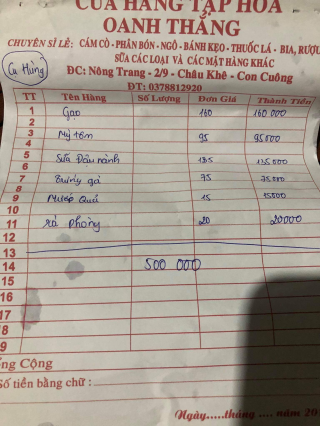 CỬA HÀNG TẠP HÓA
OANH THẮNG
CHUYÊN SỈ LẺ: CÁM CÒ - PHÂN BÓN - NGÔ - BÁNH KẸO - THUỐC LÁ - BIA, RƯỢU
SỮA CÁC LOẠI VÀ CÁC MẶT HÀNG KHÁC
Cu Hùng
ĐC: Nông Trang - 2/9 - Châu Khê - Con Cuông
ĐT: 0378812920
TT Tên Hàng Số Lượng Đơn Giá Thành Tiền
1 Gạo 160 160 000
2
3 Mỳ tôm 95 95000
4
5 Sữa Đậu nành 135 135000
6
7 Trứng gà 75 75000
8
9 Quả 15 15000
10
11 rả phòng 20 20000
12
13
14 500 000
15
16
17
18
9
ng Cộng
Số tiền bằng chữ :
Ngày.....tháng .... năm 20